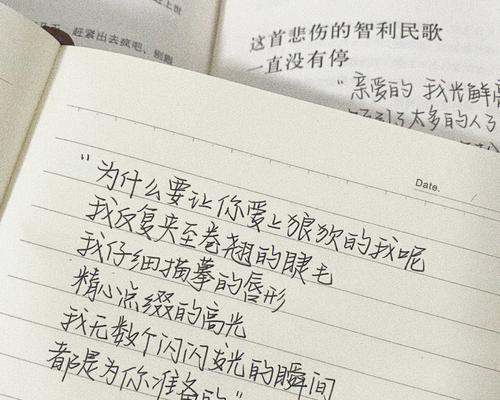 赶紧出去疯吧，别
这首悲伤的智利民歌
一直没有停
"亲爱的 我光鲜
太多的人了
Date.
"为什么要让你爱上狼狈的我呢
我反复夹至卷翘的睫毛
我仔细描摹的唇形
精心点缀的高光
我无数个闪闪发光的瞬间
都是为你准备的"